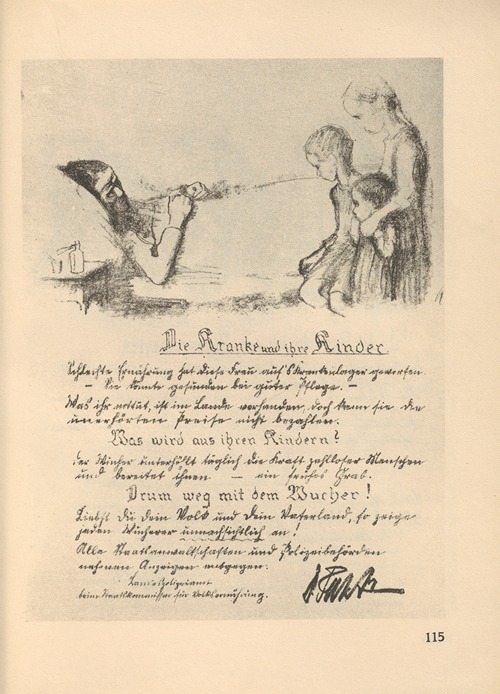 Die Kranke und ihre Kinder
Schlechte Ernährung hat diese Frau auf's Krankenlager geworfen.
– Sie könnte gesunden bei guter Pflege. –
Was ihr nottut, ist im Lande vorhanden, doch kann sie die
unerhörten Preise nicht bezahlen.
Was wird aus ihren Kindern?
Der Wucher unterhöhlt täglich die Kraft zahlloser Menschen
und bereitet ihnen – ein frühes Grab.
Drum weg mit dem Wucher!
Liebst Du Dein Volk und Dein Vaterland, so zeige
jeden Wucherer unnachsichtlich an!
Alle Staatsanwaltschaften und Polizeibehörden
nehmen Anzeigen entgegen.
Landespolizeiamt
beim Staatskommissar für Volksernährung.
115